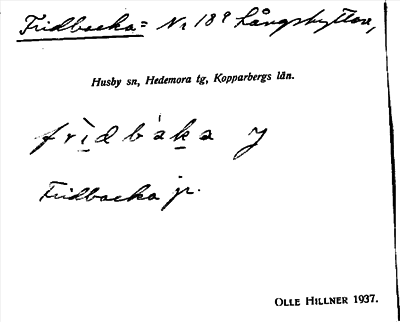 Fridbacka = Nr 189 Långshyttan,
Husby sn, Hedemora tg, Kopparbergs län.
frìdbàka y
Fridbacka jr.
OLLE HILLNER 1937.